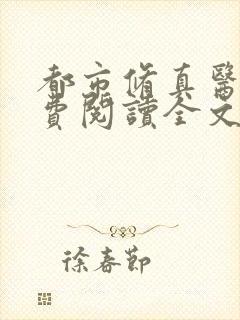 都市脩真醫
費閱讀全文
徐春節